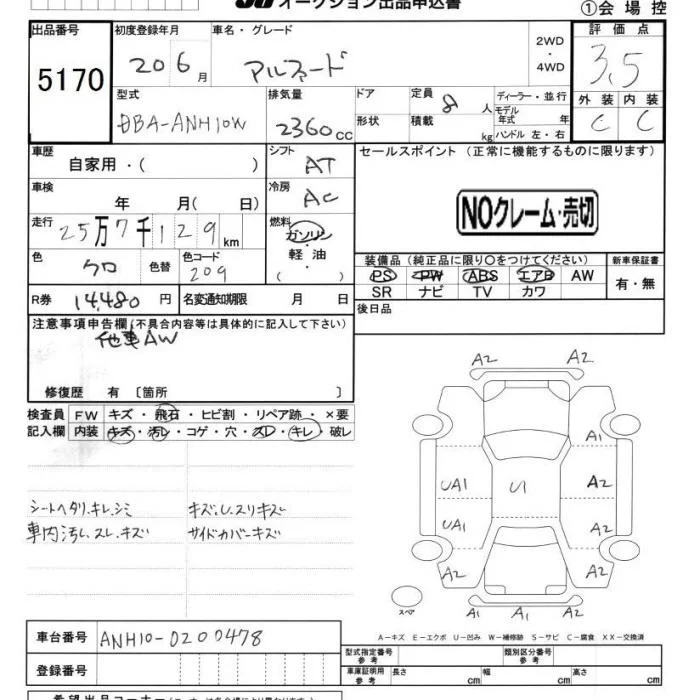 オークション出品申込書
①会場控
出品番号 初度登録年月 車名・グレード 評価点
5170 20 6月 アルファード 2WD・4WD 3.5
型式 排気量 ドア 定員 8人 ディーラー・並行 外装 内装
DBA-ANH10W 2360cc 形状 積載 kg モデル年式 年 ハンドル 左・右 C C
車歴 自家用・( ) シフト AT セールスポイント (正常に機能するものに限ります)
車検 年 月( 日) 冷房 AC
NOクレーム・売切
走行 25万7千129km 燃料 ガソリン・軽油・( )
色 クロ 色替 色コード 209
装備品(純正品に限り○をつけてください) 新車保証書
PS PW ABS エアB AW 有・無
SR ナビ TV カワ
R券 14,480円 名変通知期限 月 日
後日品
注意事項申告欄(不具合内容等は具体的に記入して下さい)
他車AW
修復歴 有 〔箇所 〕
検査員 FW キズ・飛石・ヒビ割・リペア跡・×要
記入欄 内装 キズ・汚レ・コゲ・穴・スレ・キレ・破レ
シートヘタリ.キレ.シミ キズ.し.スリキズ
車内汚し.スレ.キズ サイドカバーキズ
A2 A2
A1
UA1 U1 A2
UA1 A2
A2 A2
スペア A1 A1 A2
A-キズ E-エクボ U-凹み W-補修跡 S-サビ C-腐食 XX-交換済
車台番号 ANH10-0200478
型式指定番号 参考 類別区分番号 参考
登録番号
車庫証明用 参考 長さ cm 幅 cm 高さ cm
希望出品コーナー